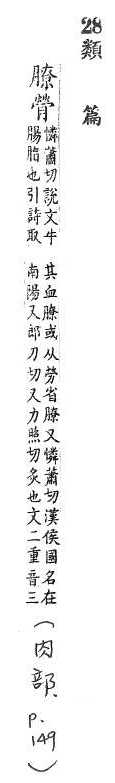 28類篇
膫膋
憐蕭切說文牛
腸脂也引詩取
其血膫或从勞省膫又憐蕭切漢侯國名在
南陽又郎刀切又力照切炙也文二重音三
(肉部 p.149)